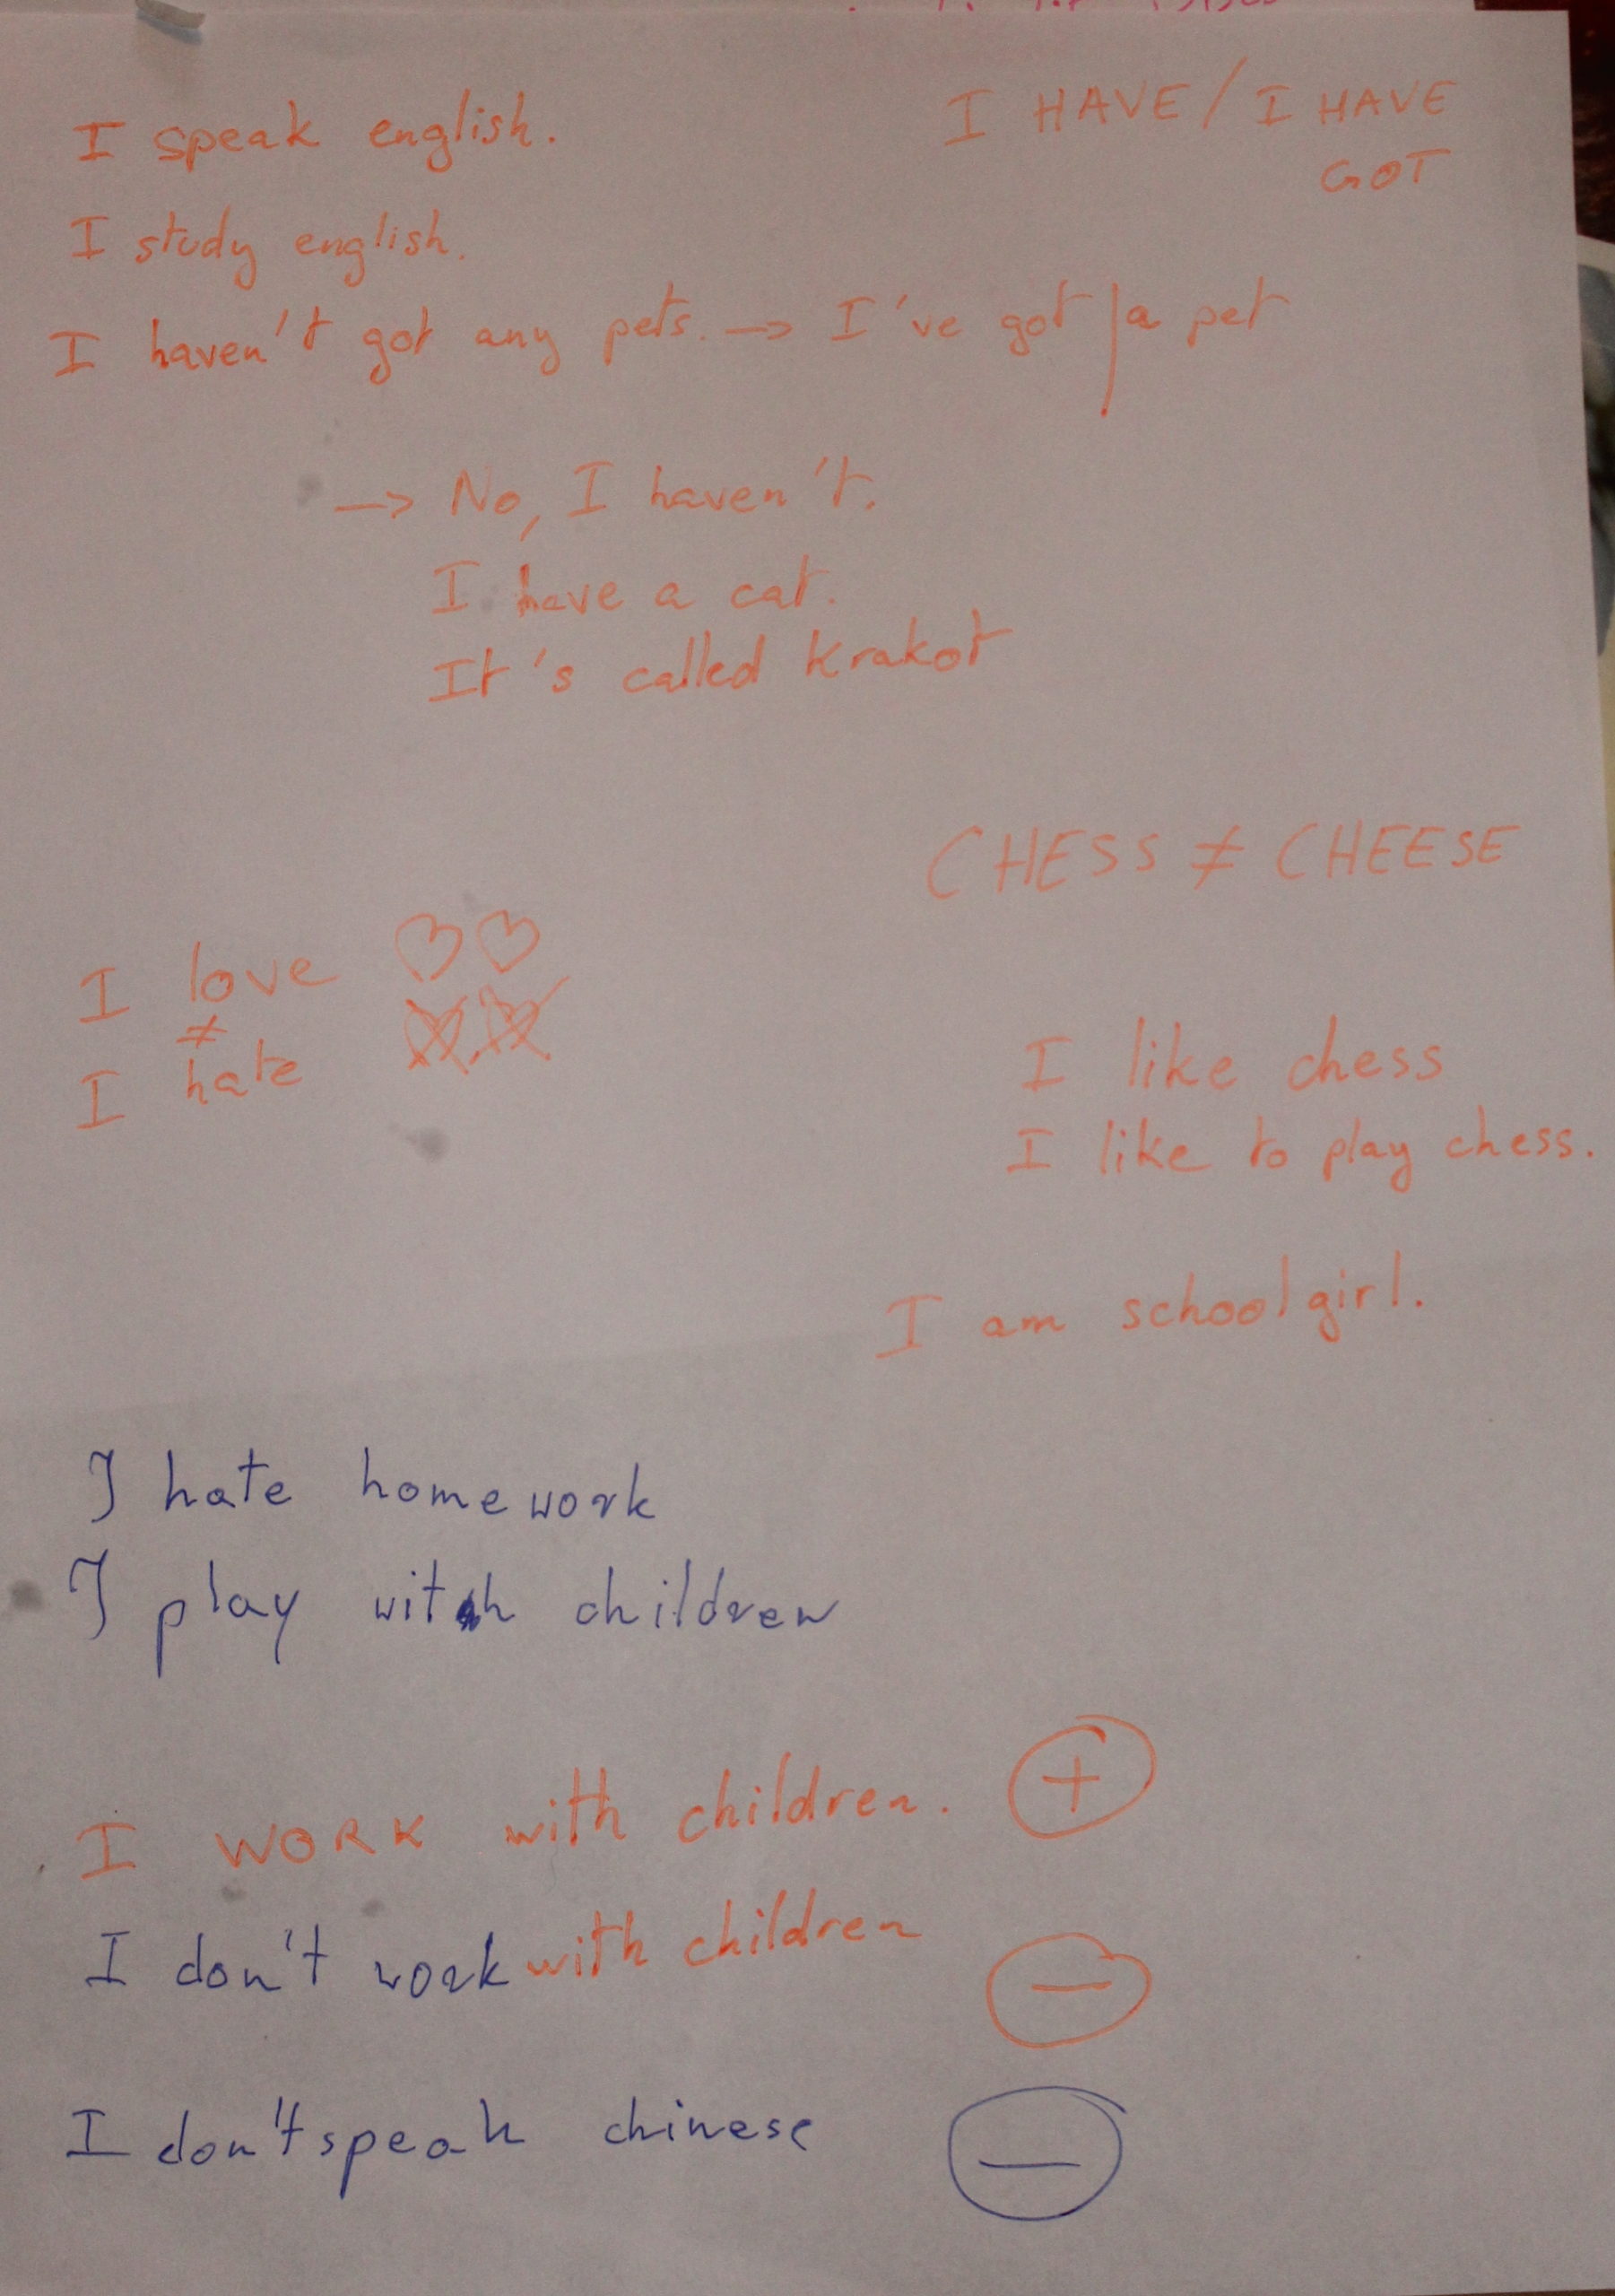 I speak english.
I HAVE / I HAVE
GOT
I study english.
I haven't got any pets. -> I've got | a pet
-> No, I haven't.
I have a cat.
It's called Krakot
CHESS ≠ CHEESE
I love ♡♡
≠
I hate
I like chess
I like to play chess.
I am schoolgirl.
I hate homework
I play with children
I WORK with children. +
I don't work with children -
I don't speak chinese -